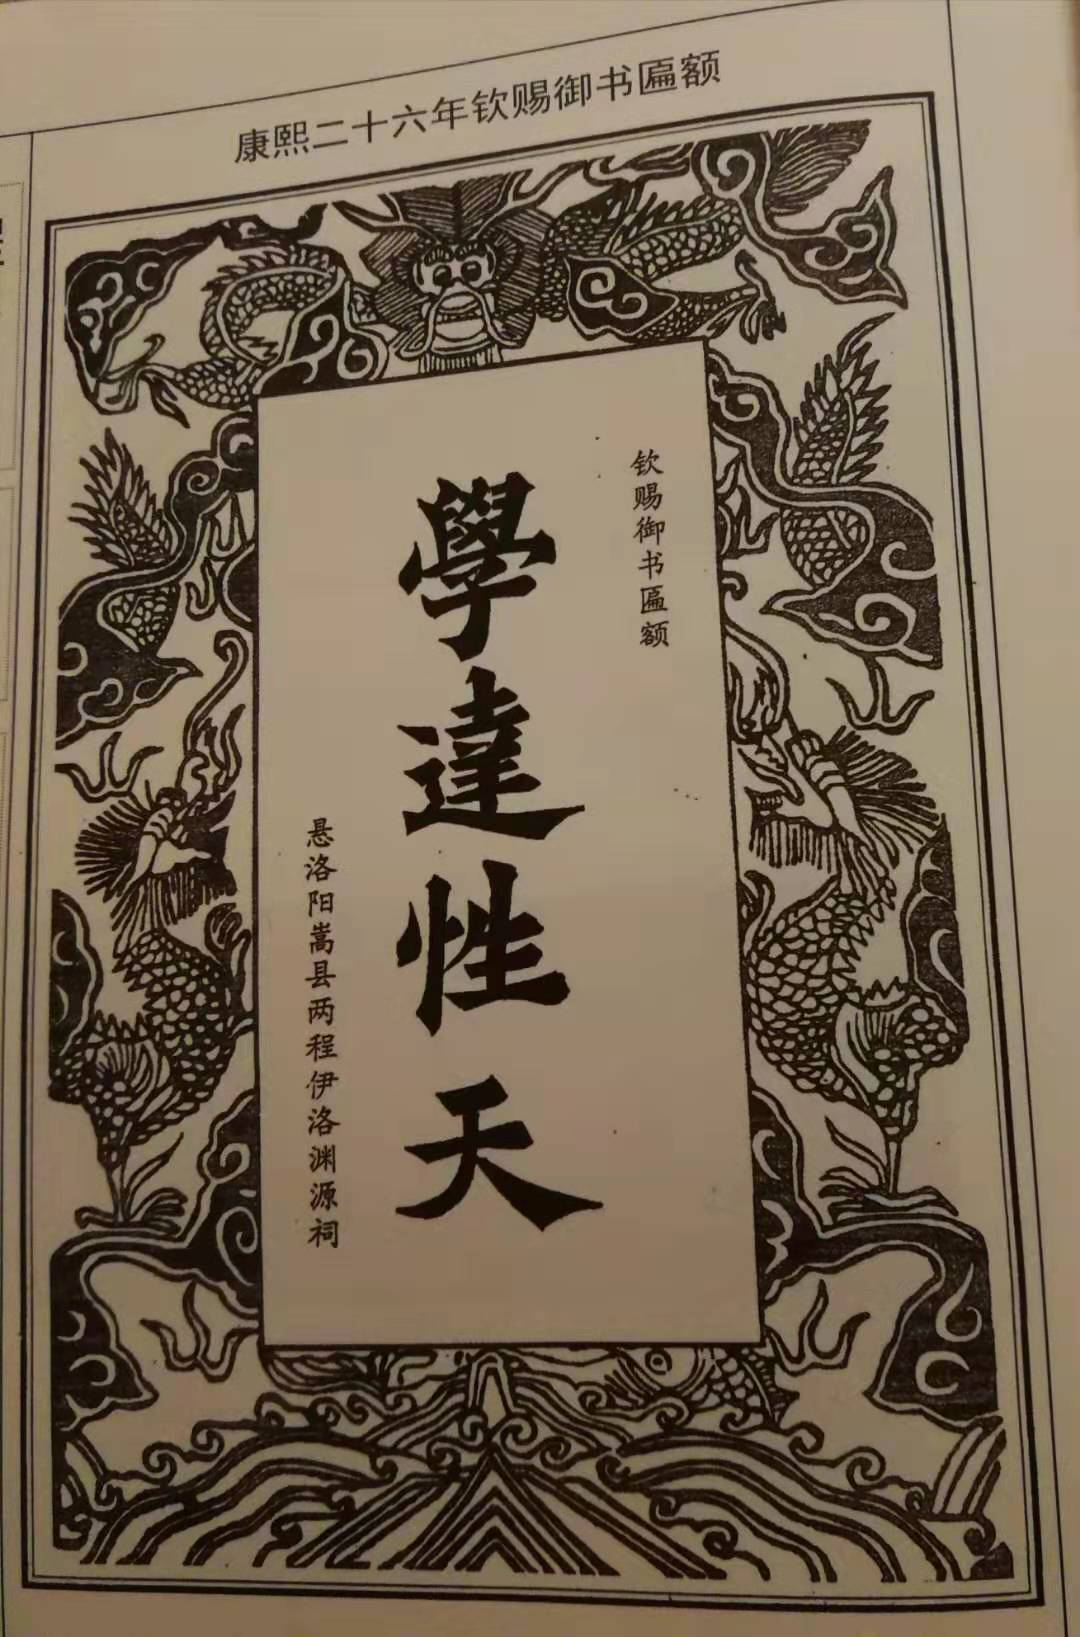 康熙二十六年钦赐御书匾额
钦赐御书匾额
學達性天
悬洛阳嵩县两程伊洛渊源祠